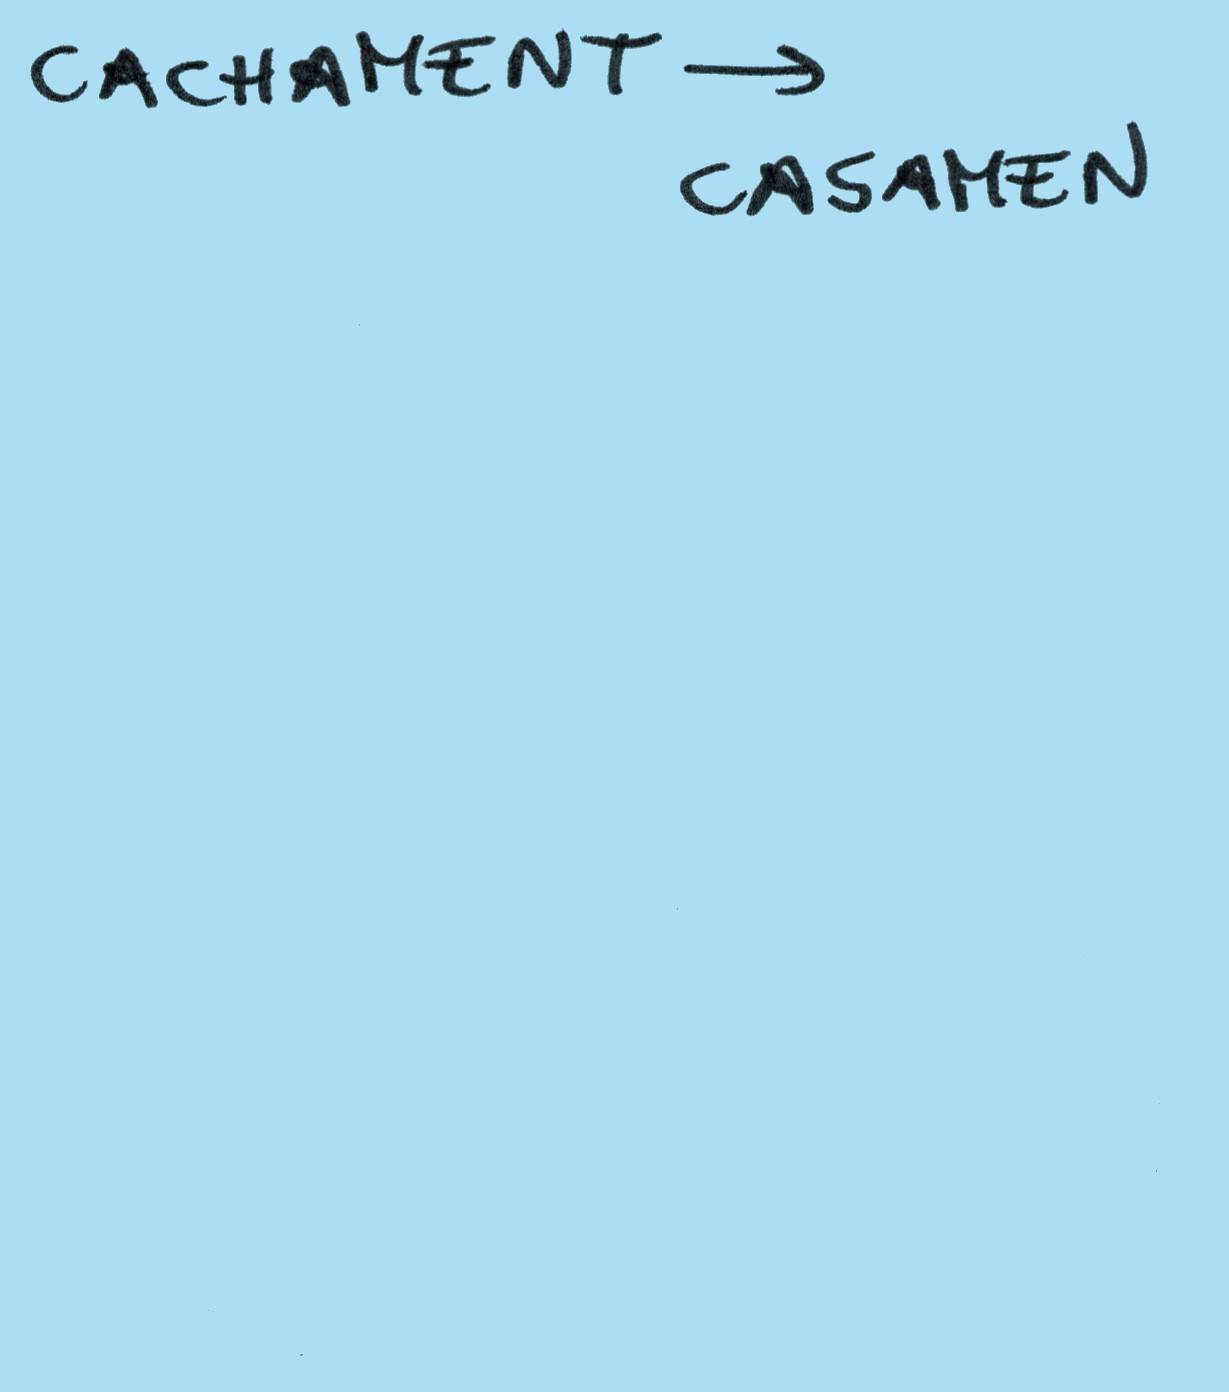 CACHAMENT →
CASAMEN